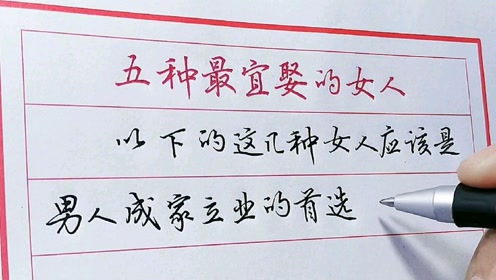 五种最宜娶的女人
以下的这几种女人应该是
男人成家立业的首选